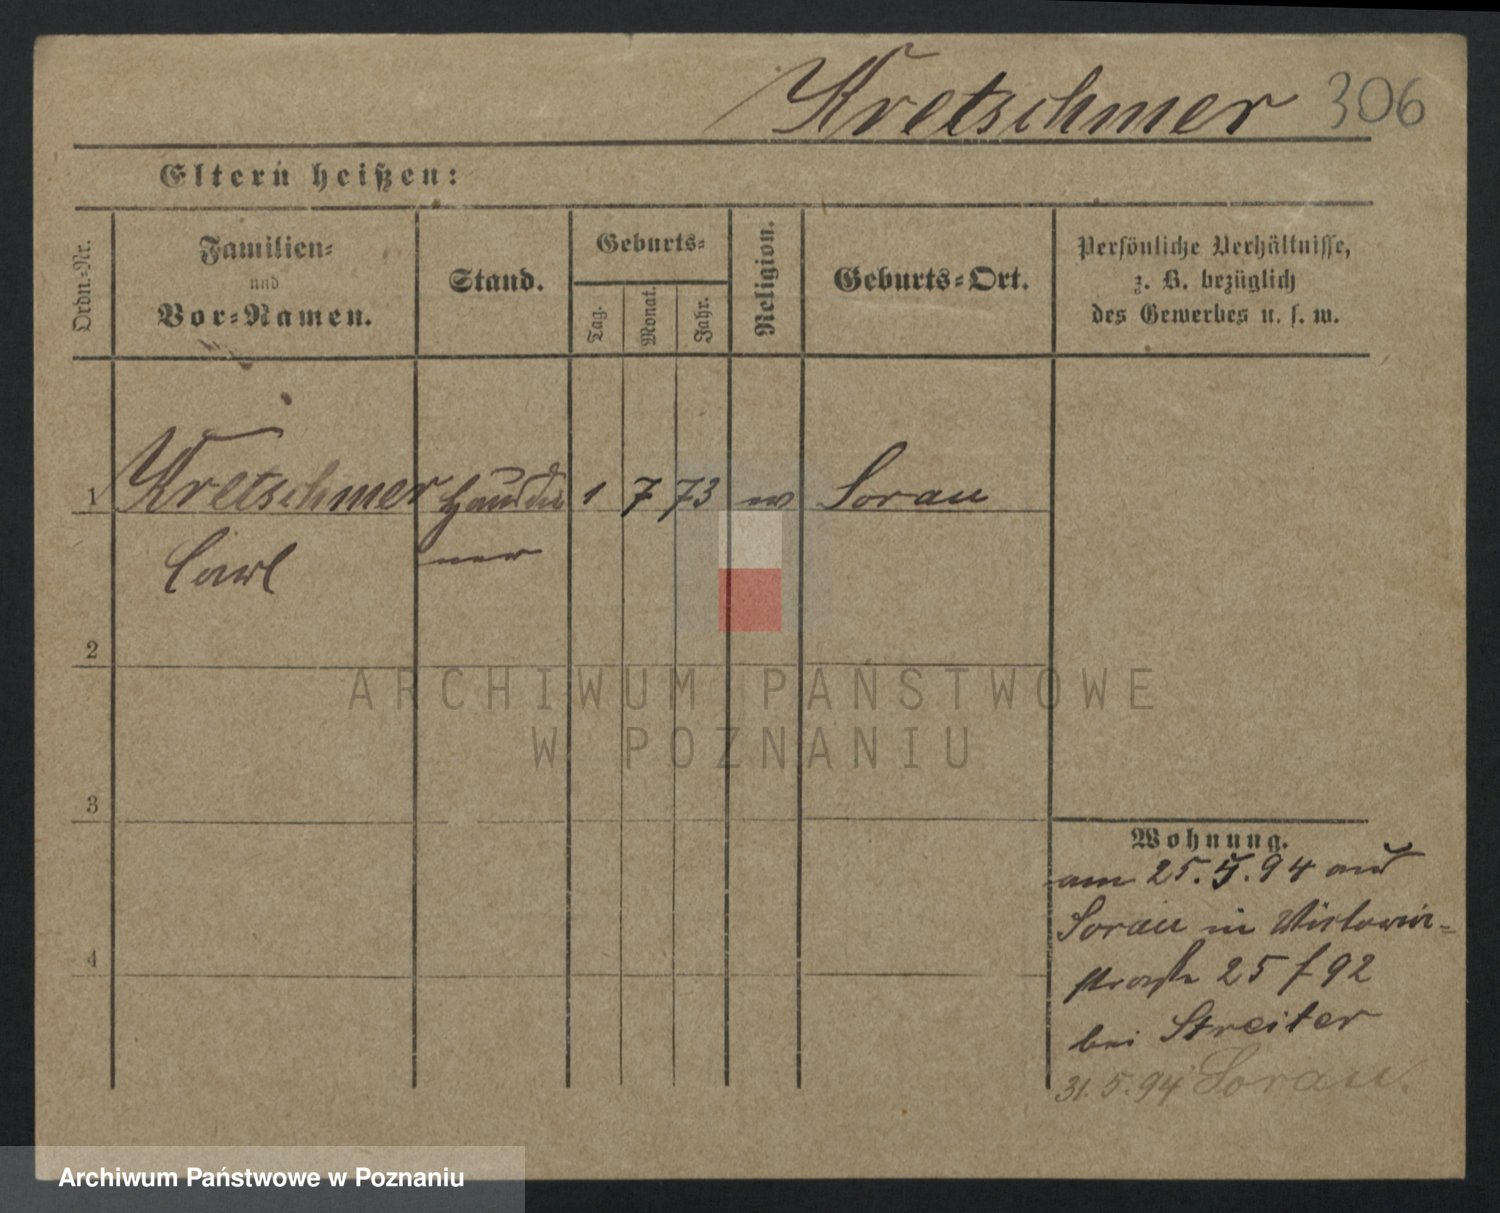 Kretschmer 306
Eltern heißen:
Ordn.-Nr.
Familien-
und
Vor-Namen.
Stand.
Geburts-
Tag.
Monat.
Jahr.
Religion.
Geburts-Ort.
Persönliche Verhältnisse,
z. B. bezüglich
des Gewerbes u. s. w.
1 Kretschmer 1 7 73 ev Sorau
Carl ner
2
3
4
ARCHIWUM PAŃSTWOWE
W POZNANIU
Wohnung.
am 25.5.94 aus
Sorau in
straße 25 f 92
bei Streiter
31.5.94 Sorau.
Archiwum Państwowe w Poznaniu